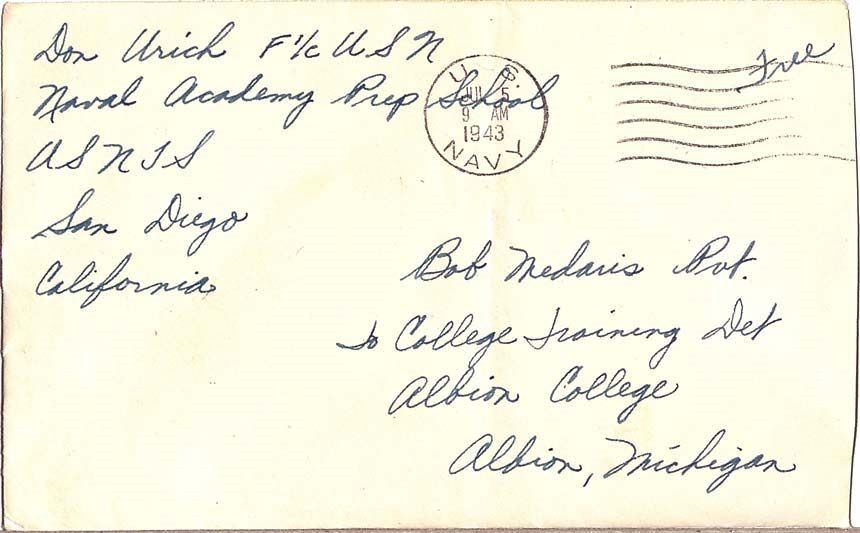 Don Urich F 1/c U S N
Naval Academy Prep School
U S N T S
San Diego
California
Free
U. S.
JUL 5
9 AM
1943
NAVY
Bob Medaris Pvt.
to College Training Det
Albion College
Albion, Michigan